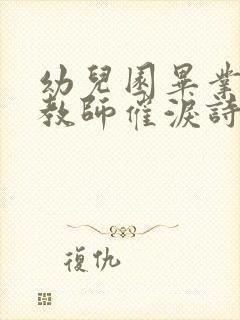 幼兒園畢業
教師催淚詩
復仇